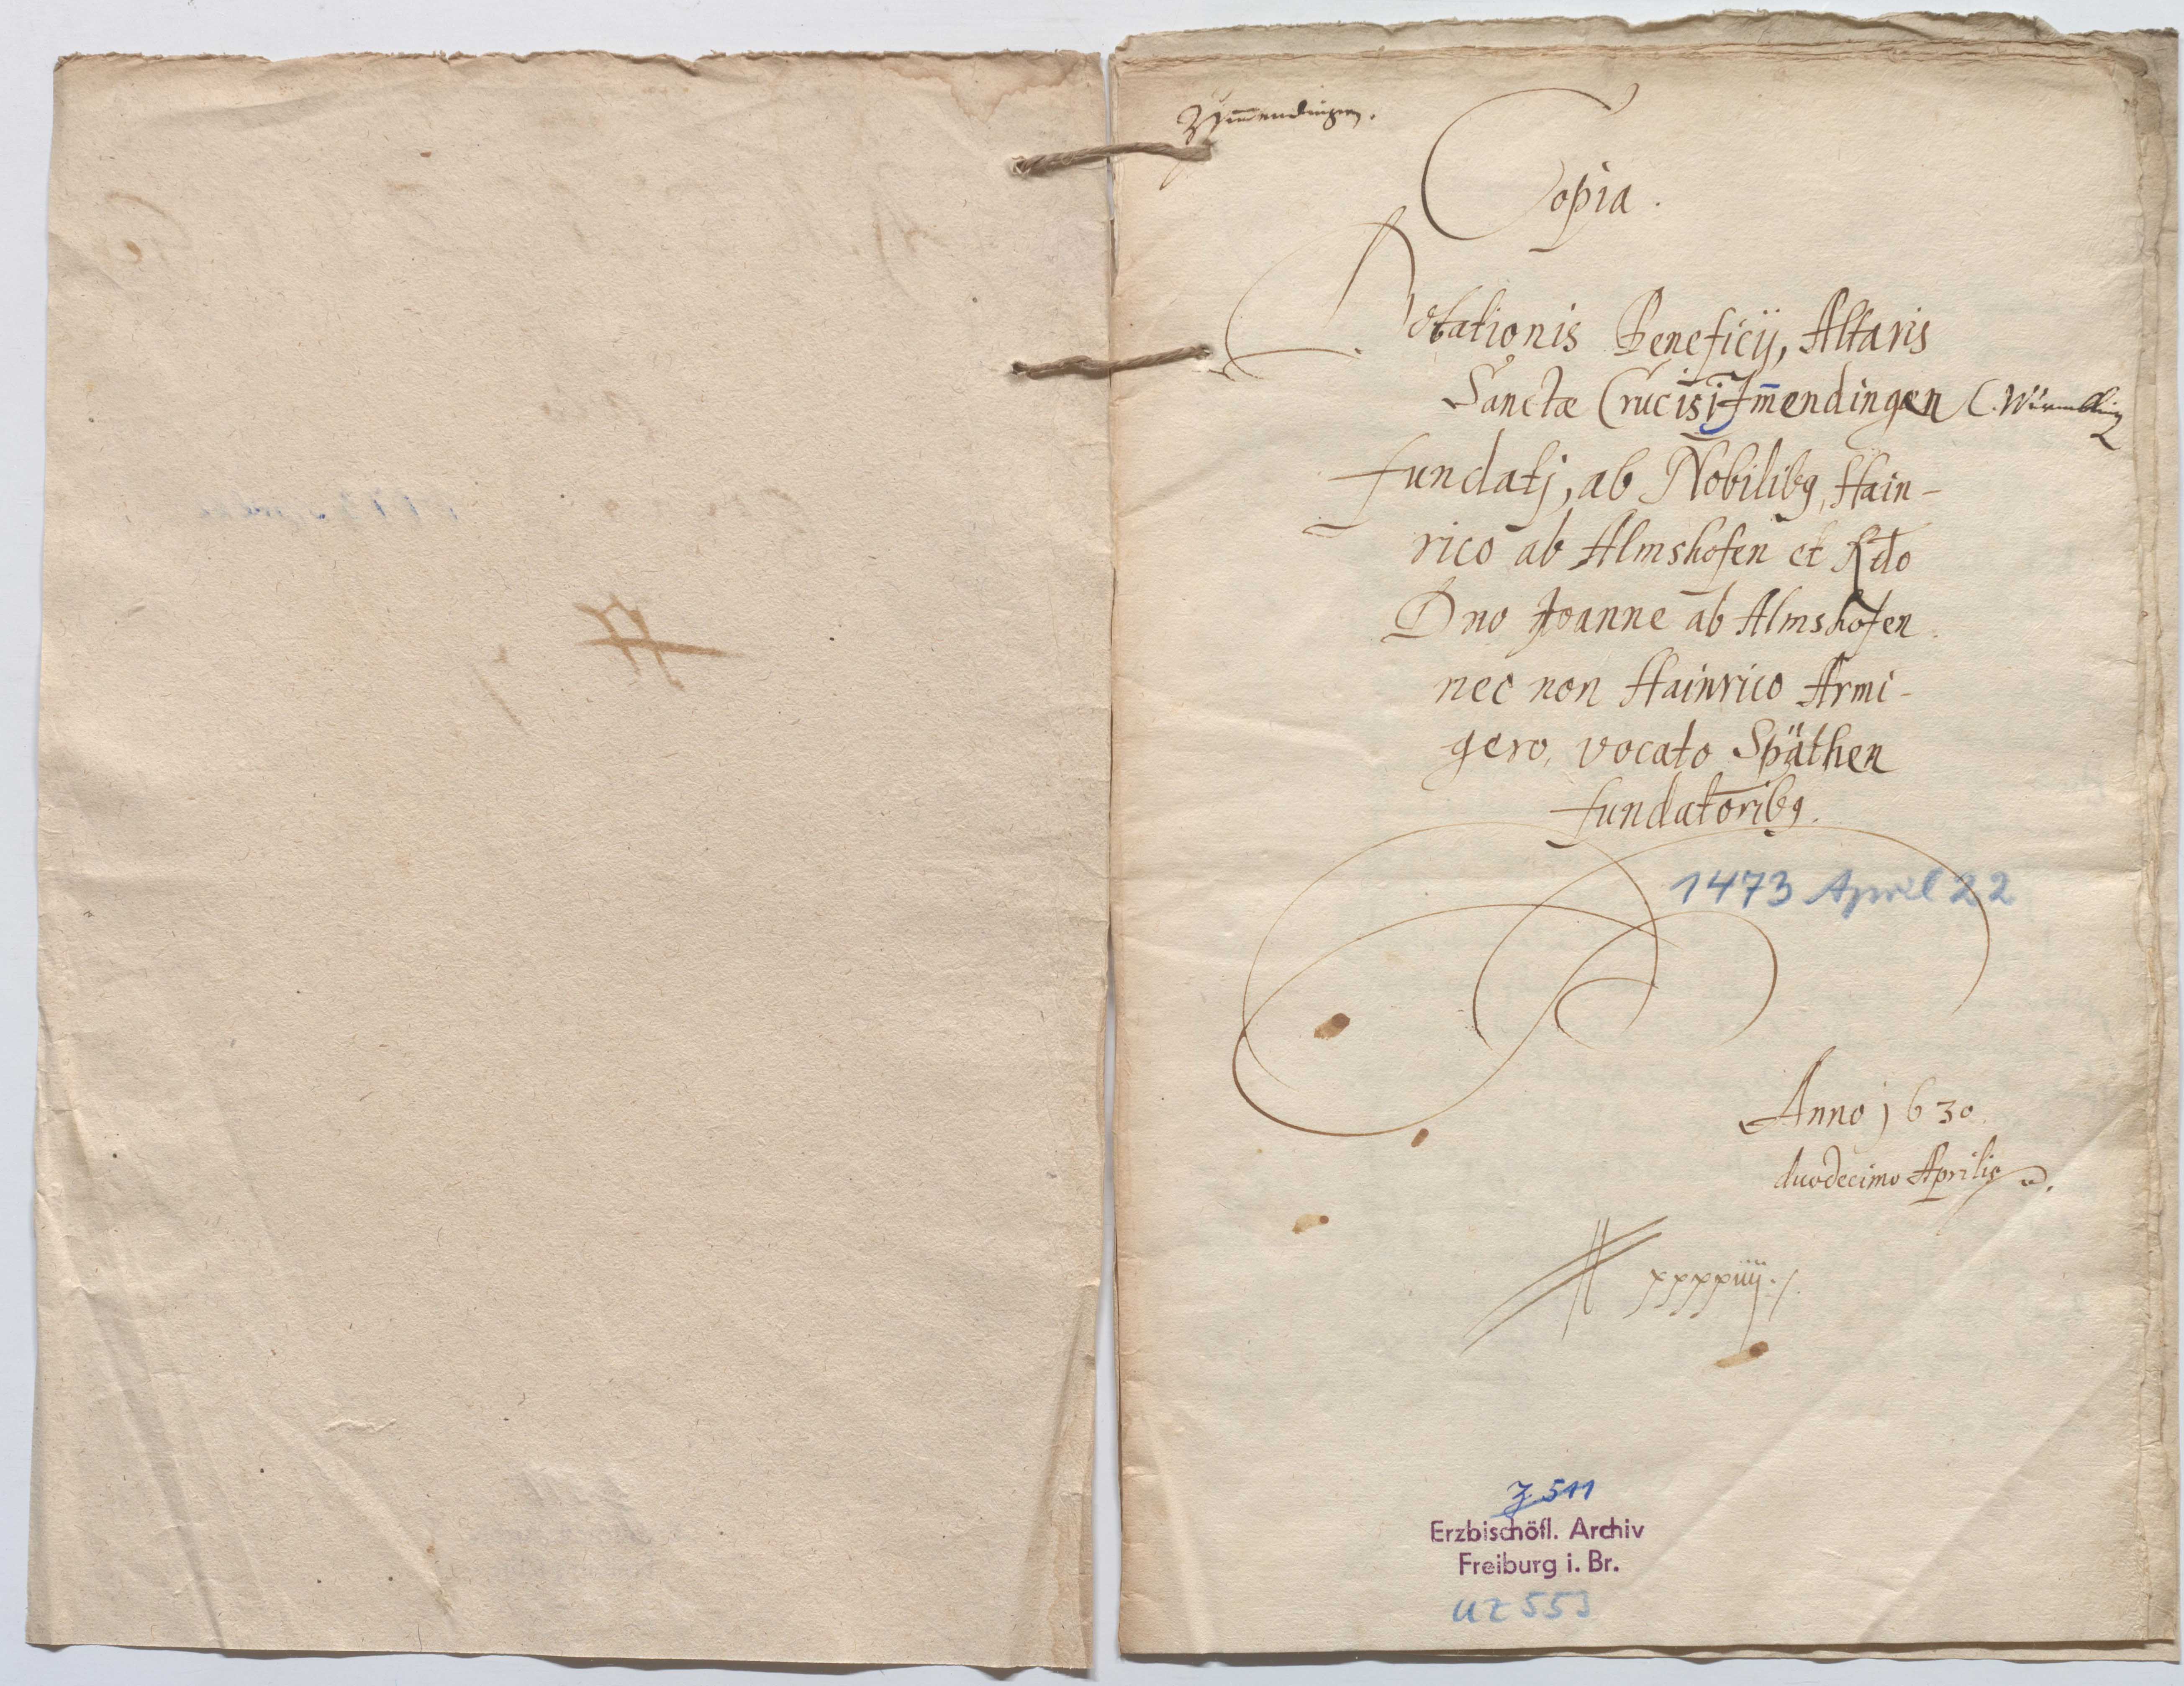 Zimmendingen.
Copia.
Dotationis Beneficij, Altaris
Sanctæ Crucis i Im̄endingen
fundatj, ab Nobilibꝫ, Hain-
rico ab Almshofen et Rdo
Dno Joanne ab Almshofen
nec non Hainrico Armi-
gero, vocato Späthen
fundatoribꝫ.
1473 April 22
Anno 1630.
duodecimo Aprilis
xxxxiiij
Z 511
Erzbischöfl. Archiv
Freiburg i. Br.
UZ 553